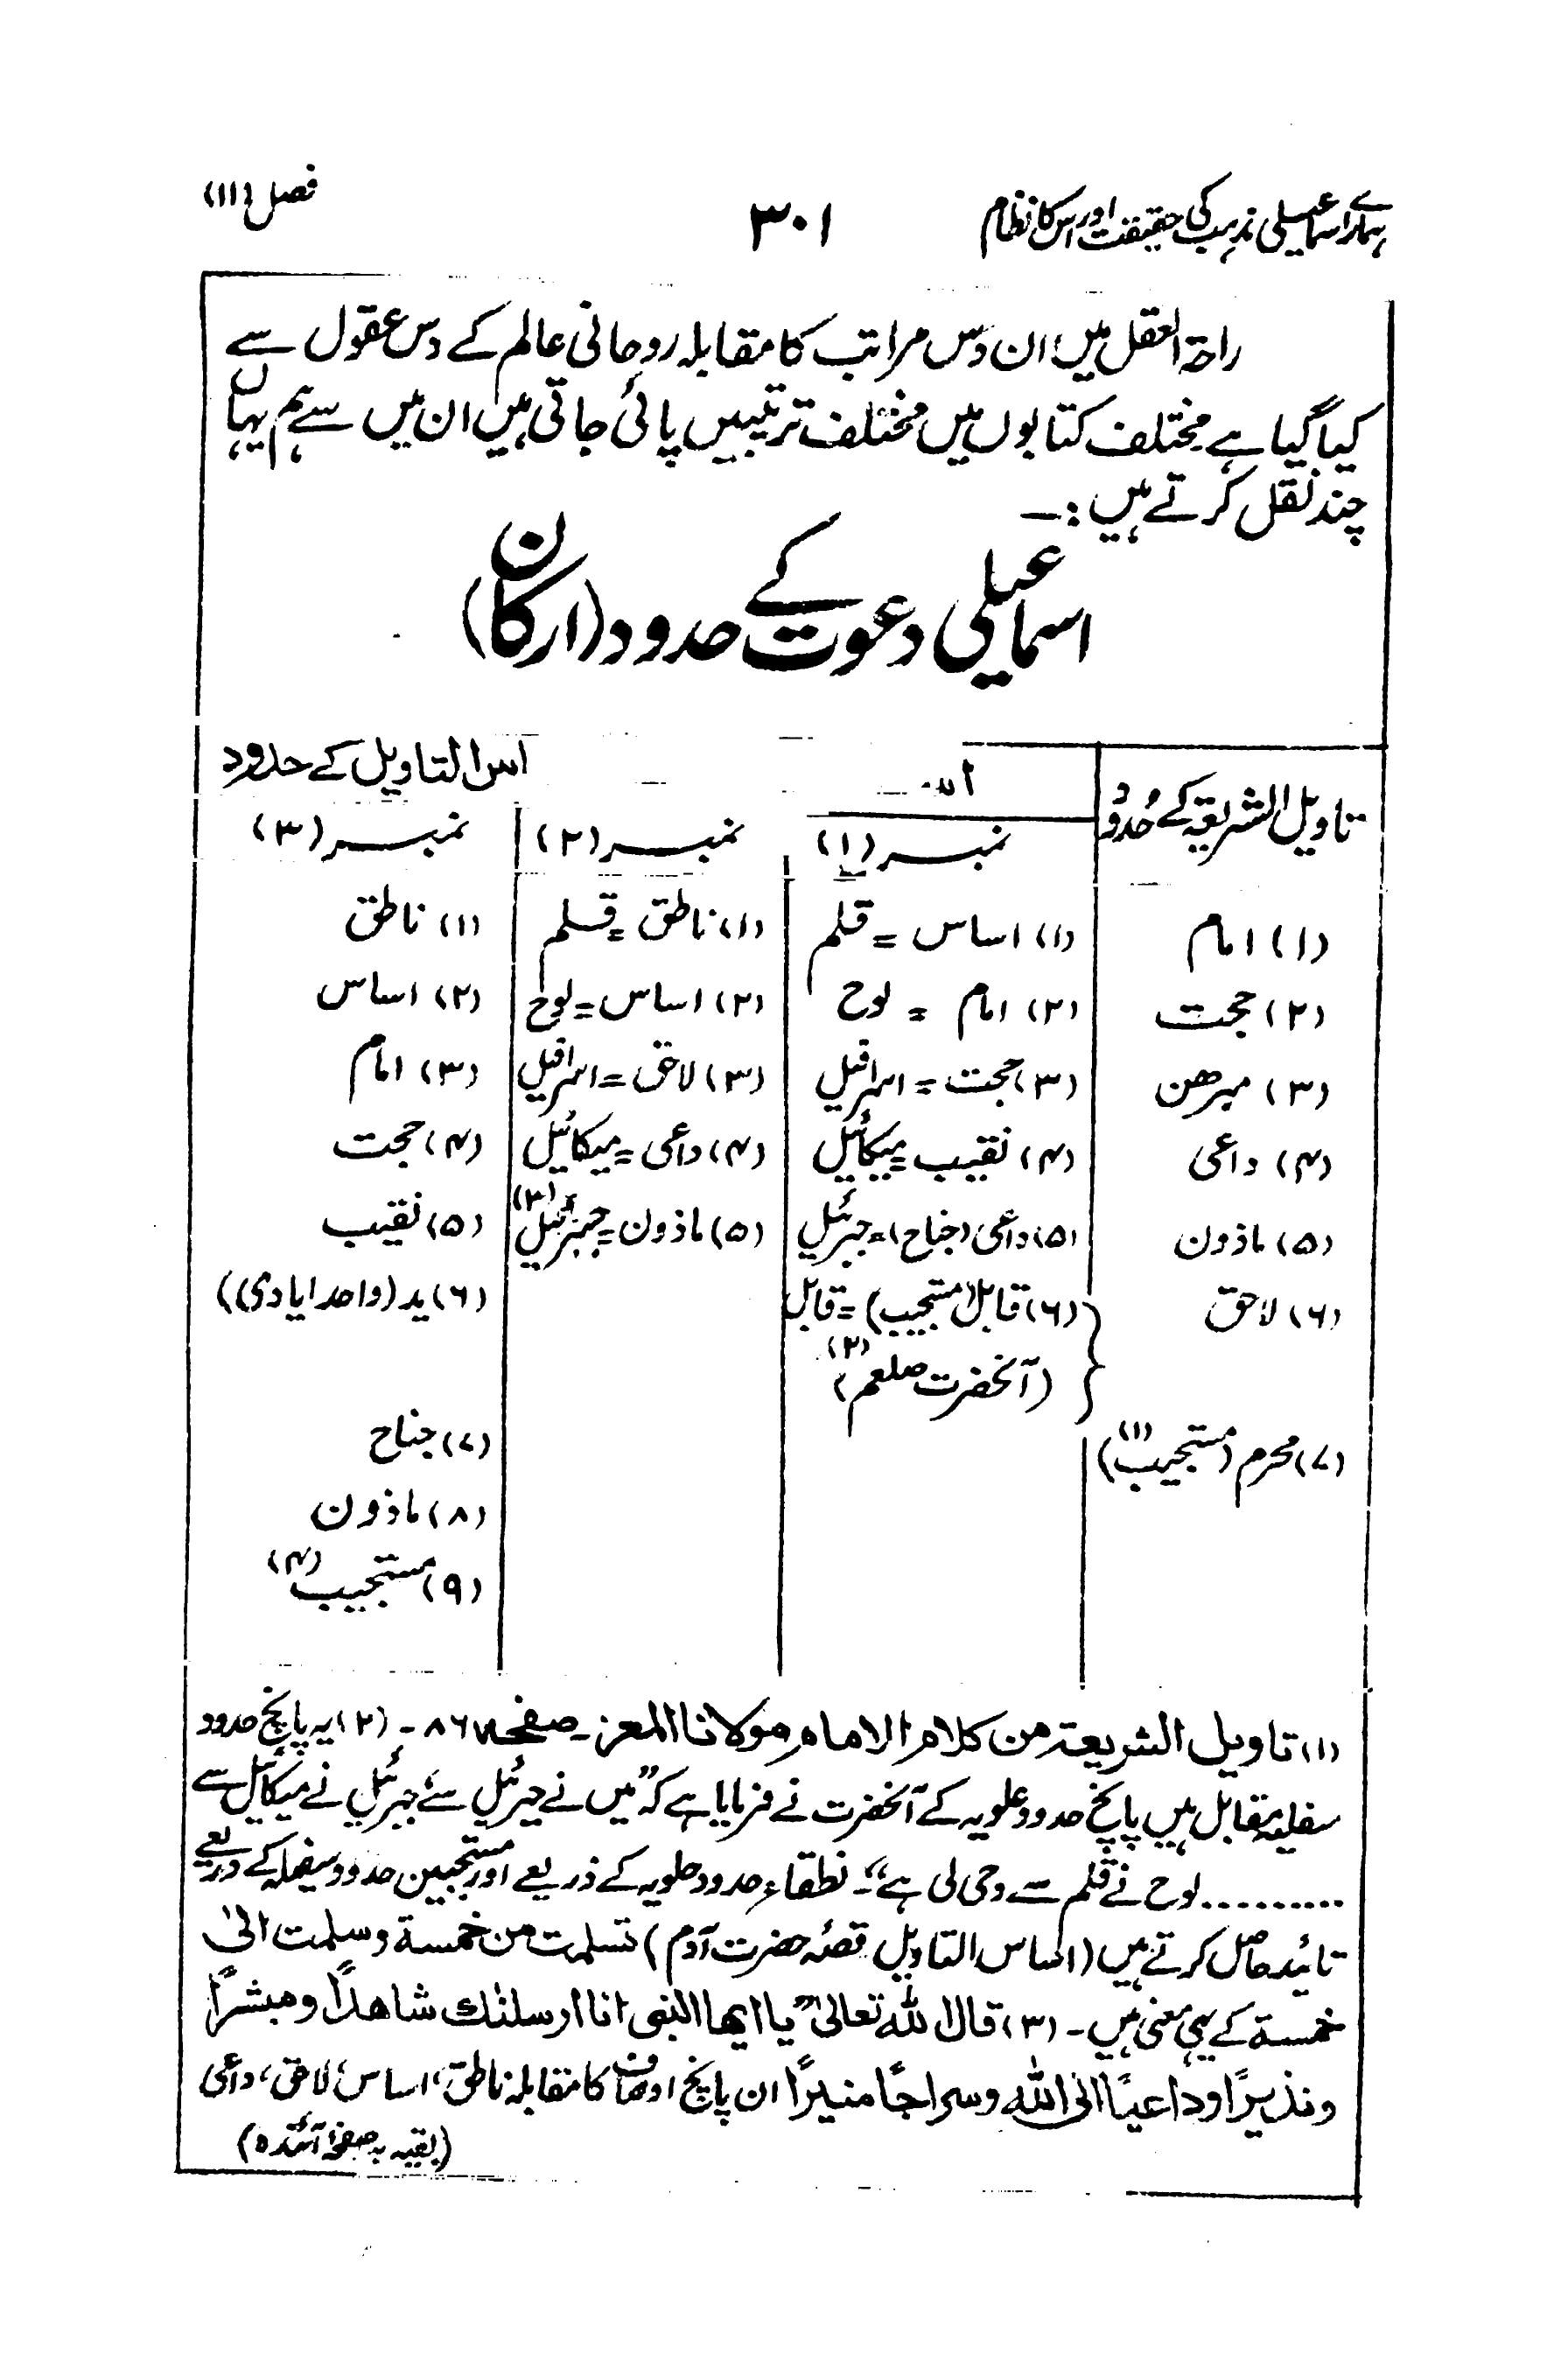 ہمارے اسماعیلی مذہب کی حقیقت اور اس کا نظام
۳۰۱
فصل (۱۱)
راحۃ العقل میں ان دس مراتب کا مقابلہ روحانی عالم کے دس عقول سے
کیا گیا ہے مختلف کتابوں میں مختلف ترتیبیں پائی جاتی ہیں ان میں سے ہم یہاں
چند نقل کرتے ہیں :۔
اسماعیلی دعوت کے حدود (ارکان)
تاویل الشریعۃ کے حدود
اس التاویل کے حدود
نمبر (۱) نمبر (۲) نمبر (۳)
(۱) امام (۱) اساس = قلم (۱) ناطق = قلم (۱) ناطق
(۲) حجت (۲) امام = لوح (۲) اساس = لوح (۲) اساس
(۳) میرھن (۳) حجت = اسرافیل (۳) لاحق = اسرافیل (۳) امام
(۴) داعی (۴) نقیب = میکائیل (۴) داعی = میکائیل (۴) حجت
(۵) ماذون (۵) داعی (جناح) = جبرئیل (۵) ماذون = جبرئیل (۳) (۵) نقیب
(۶) لاحق (۶) قابل (مستجیب) = قابل (۶) ید (واحد ایادی)
(آنحضرت صلعم) (۲)
(۷) محرم (مستجیب) (۱) (۷) جناح
(۸) ماذون
(۹) مستجیب (۴)
(۱) تاویل الشریعۃ من کلام الامام مولانا المعز۔ صفحہ ۸۶۔ (۲) یہ پانچ حدود
سفلیہ مقابل ہیں پانچ حدود علویہ کے آنحضرت نے فرمایا ہے کہ "میں نے جبرئیل سے، جبرئیل نے میکائیل سے
.......... لوح نے قلم سے وحی لی ہے"۔ نطقاء حدود علویہ کے ذریعے اور مستجیبین حدود سفلیہ کے ذریعے
تائید حاصل کرتے ہیں (اساس التاویل قصۂ حضرت آدم) تسلمت من خمسۃ وسلمت الیٰ
خمسۃ کے یہی معنی ہیں۔ (۳) قال اللہ تعالیٰ "یا ایھا النبی انا ارسلنٰک شاھدًا ومبشرًا
ونذیرًا وداعیًا الی اللہ وسراجًا منیرًا ان پانچ اوصاف کا مقابلہ ناطق، اساس، لاحق، داعی
(بقیہ بر صفحۂ آئندہ)